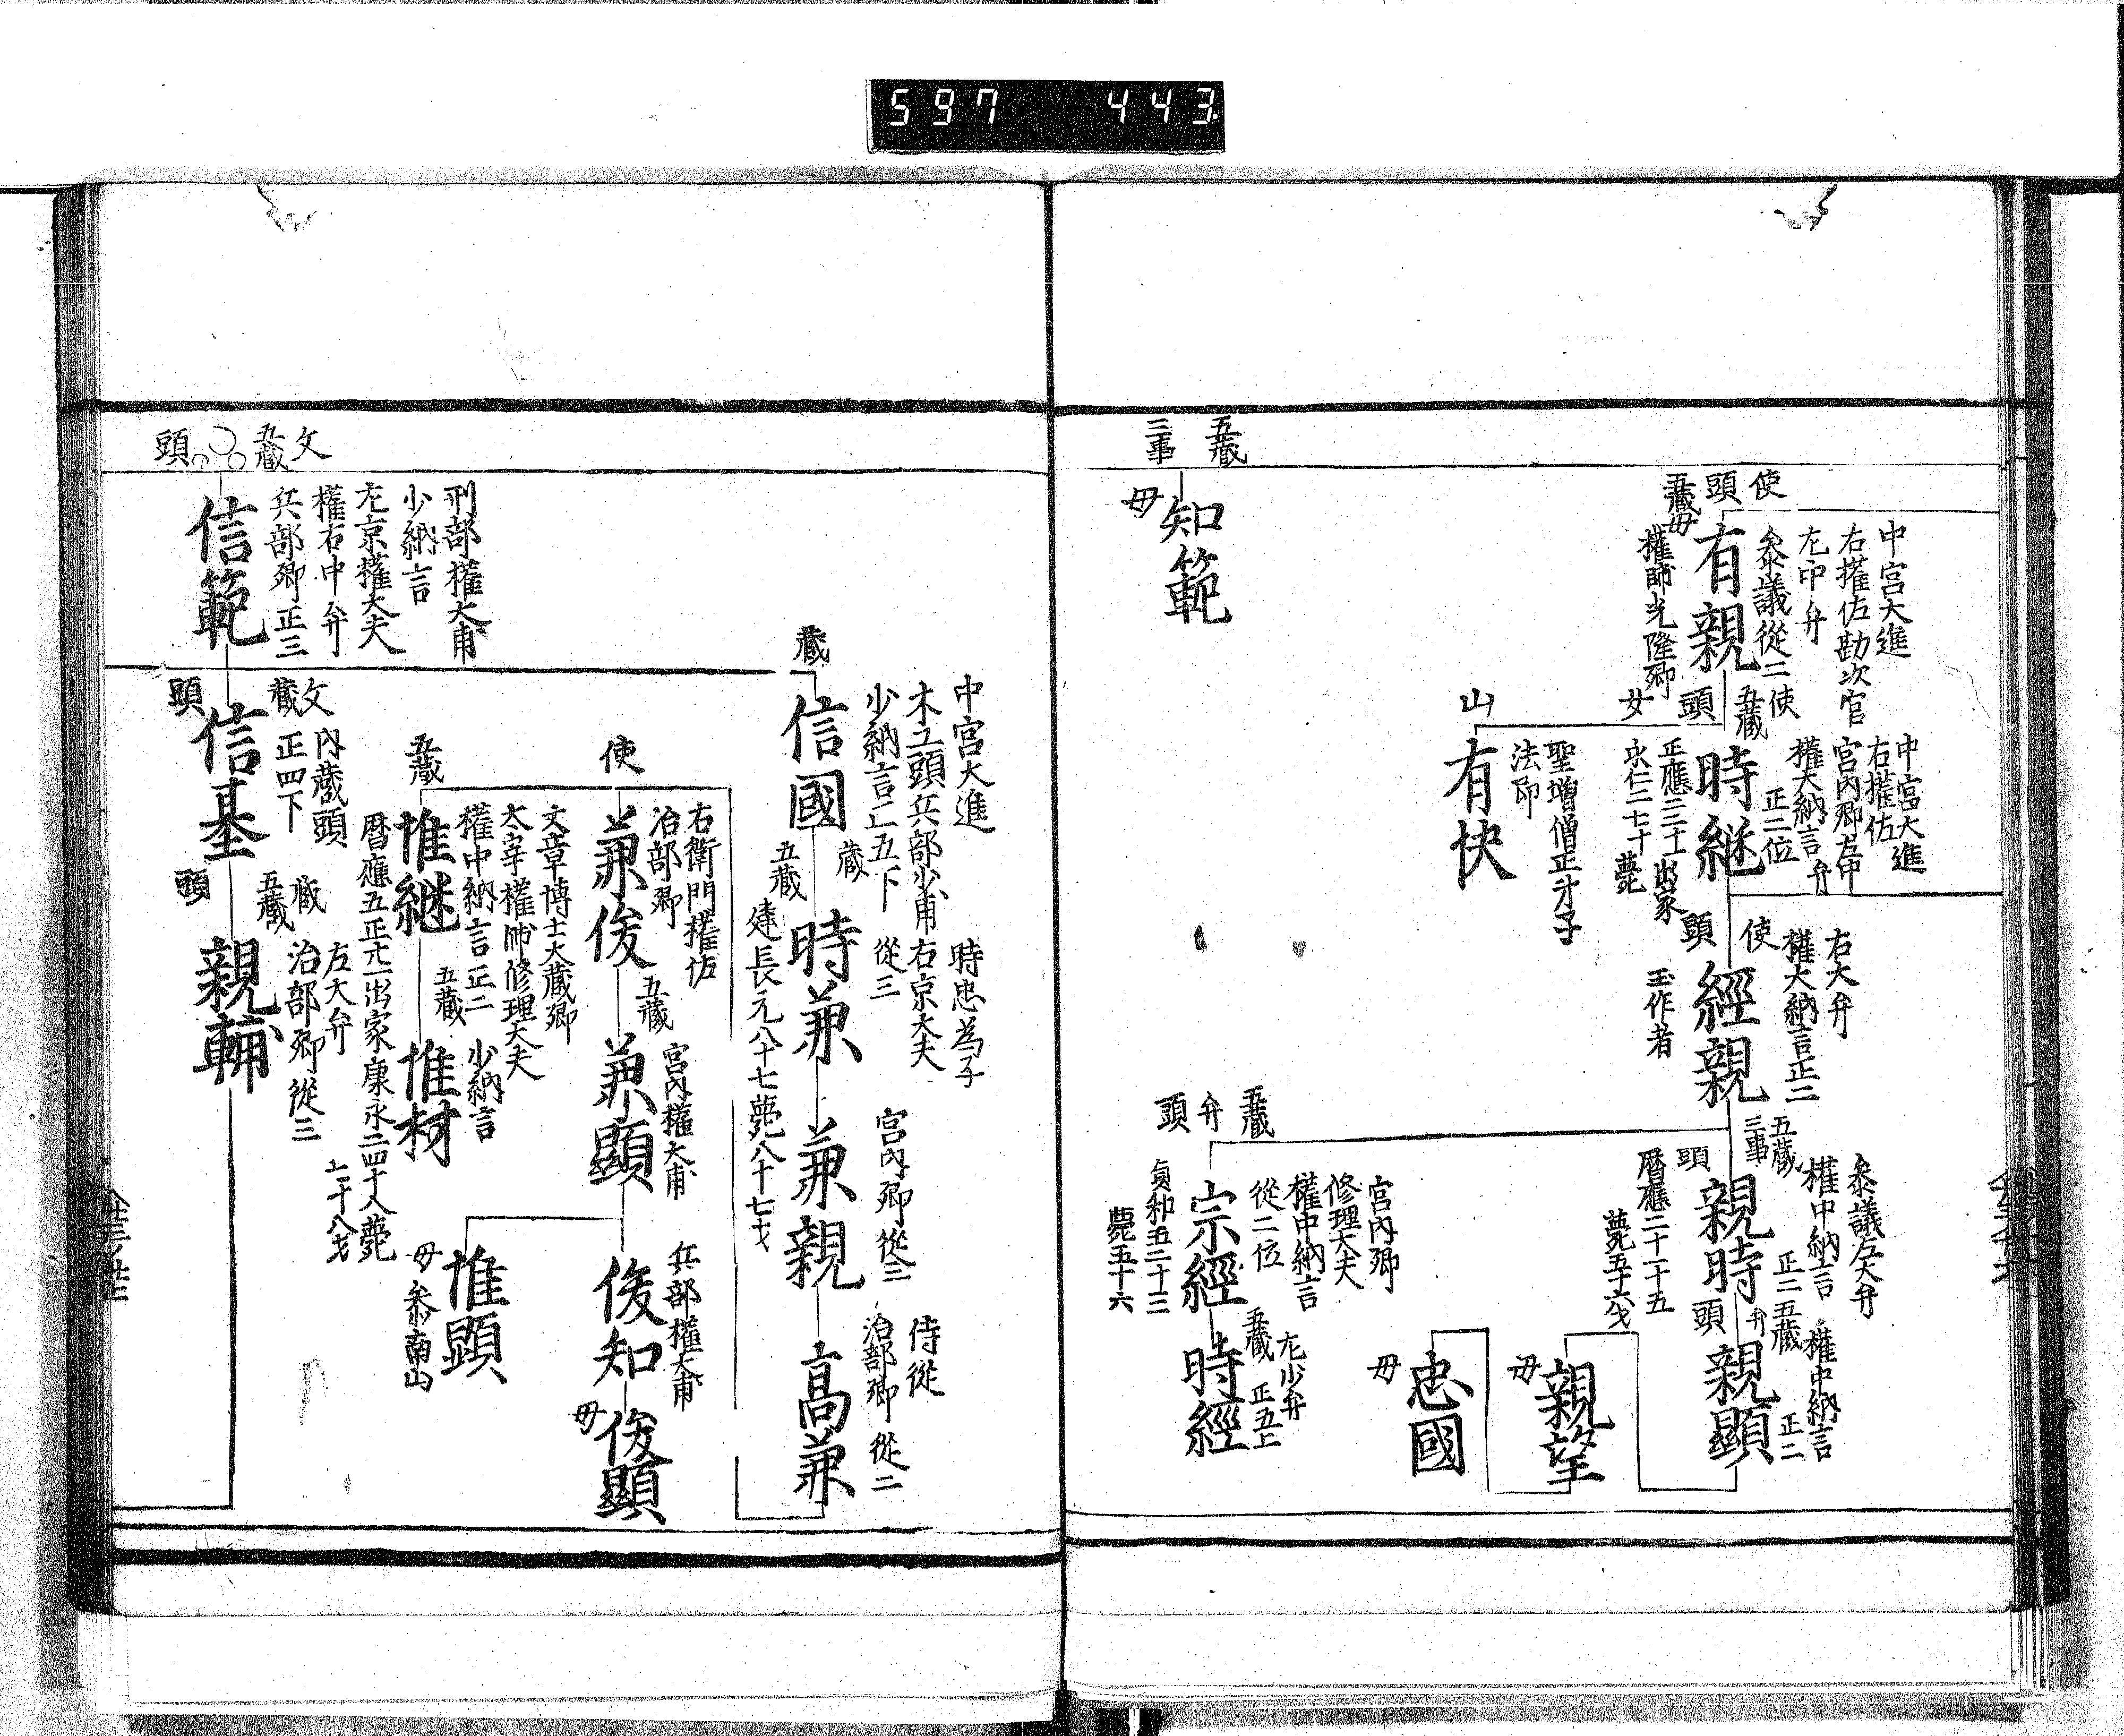 597 443
使
頭
五藏
母
有親
中宮大進
右權佐勘次官
左中弁
参議從二
權帥光隆卿
女
使
五藏
頭
時継
中宮大進
右權佐
宮内卿左中弁
權大納言
正二位
正應三三十一出家
永仁二七十薨
山
有快
聖増僧正才子
法印
使
頭
經親
右大弁
權大納言正二
玉作者
五藏
三事
頭
親時
参議左大弁
權中納言
正二
暦應二十一十五
薨五十六才
五藏
弁
頭
親顯
權中納言
正二
親望
母
忠國
母
五藏
弁
頭
宗經
宮内卿
修理大夫
權中納言
從二位
貞和五二十三
薨五十六
五藏
時經
左少弁
正五上
五藏
三事
知範
母
藏
信國
中宮大進
木工頭兵部少甫
少納言正五下
藏
五藏
時兼
時忠為子
右京大夫
從三
建長元八十七薨八十七才
兼親
宮内卿從三
高兼
侍從
治部卿從二
使
兼俊
右衛門權佐
治部卿
五藏
兼顯
宮内權大甫
俊知
兵部權大甫
俊顯
母
惟顯
母
参南山
五藏
惟継
文章博士大藏卿
太宰權帥修理大夫
權中納言正二
暦應五正廿一出家康永二四十八薨
七十八才
五藏
惟材
少納言
文
五藏
頭
信範
刑部權大甫
少納言
左京權大夫
權右中弁
兵部卿正三
文
藏
頭
信基
内藏頭
正四下
藏
五藏
頭
親輔
左大弁
治部卿從三